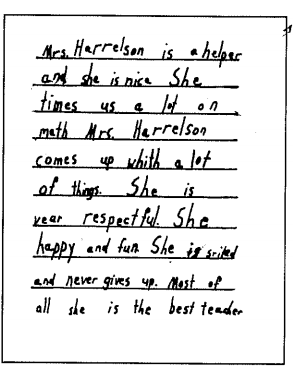 Mrs. Harrelson is a helper
and she is nice She
times us a lot on
math Mrs. Harrelson
comes up whith a lot
of things. She is
vear respectful. She
happy and fun. She is
and never gives up. Most of
all she is the best teacher